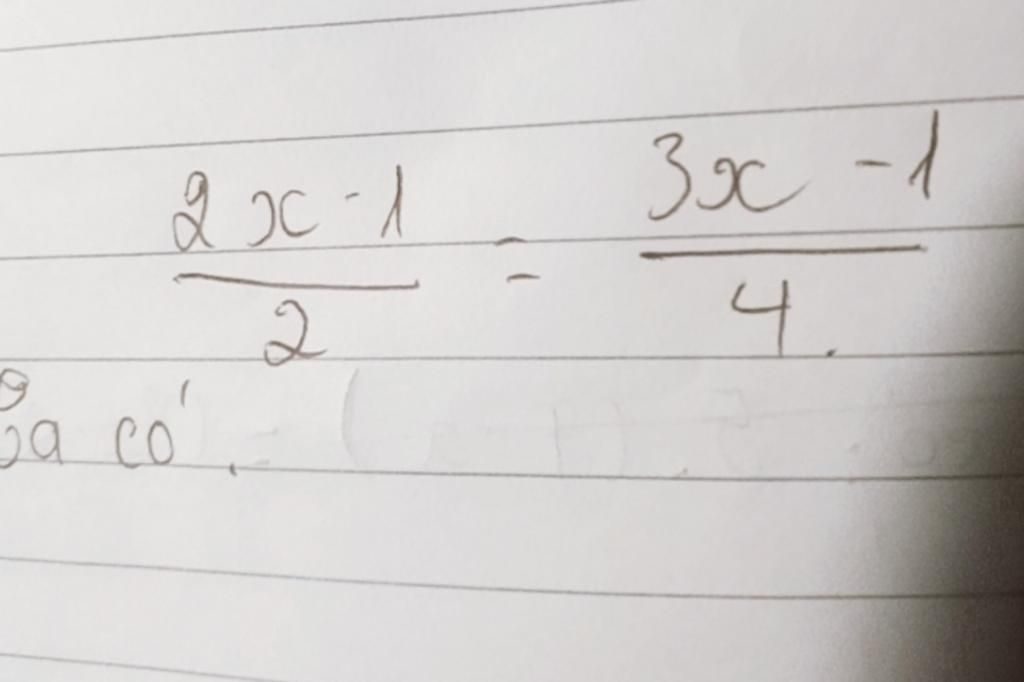 2x - 1 / 2 = 3x - 1 / 4.
có